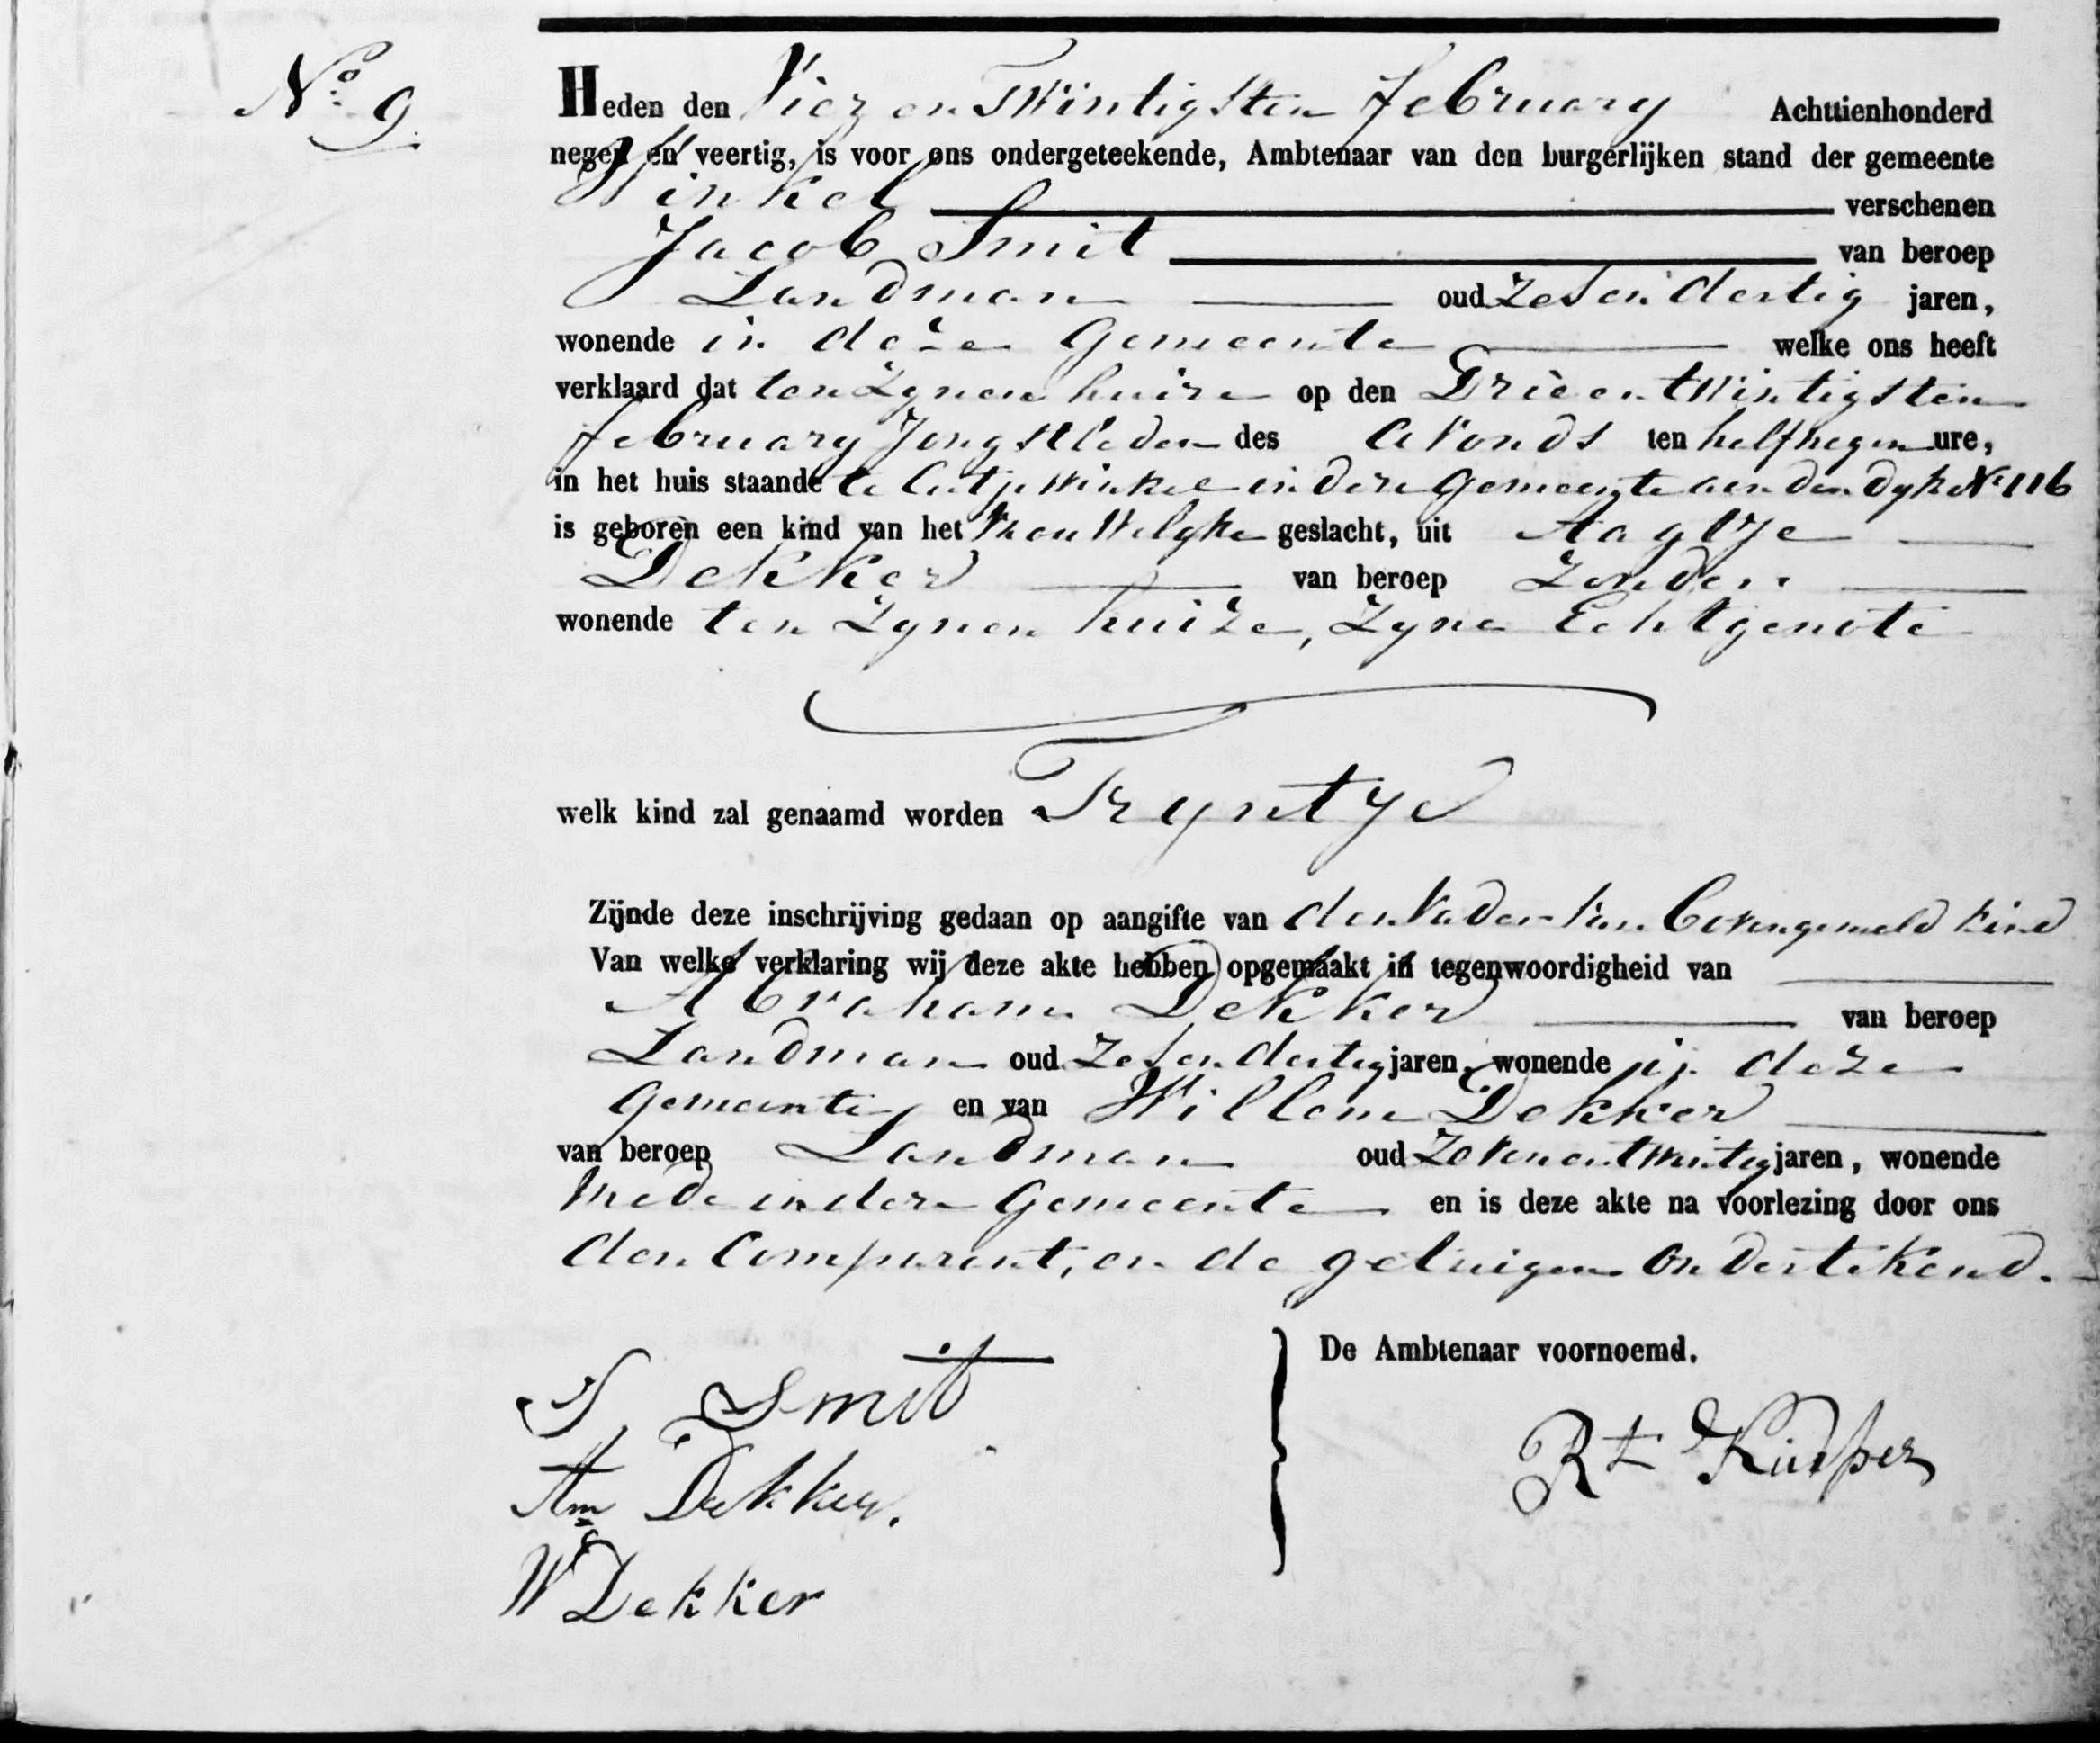 No 9.
Heden den Vier en Twintigsten February Achttienhonderd
negen en veertig, is voor ons ondergeteekende, Ambtenaar van den burgerlijken stand der gemeente
Winkel verschenen
Jacob Smit van beroep
Landman oud Zesendertig jaren,
wonende in deze Gemeente welke ons heeft
verklaard dat ten Zynen huize op den Drieentwintigsten
February Jongstleden des avonds ten halfnegen ure,
in het huis staande te Lutjewinkel in deze Gemeente aan den dyk No 116
is geboren een kind van het Vrouwelyke geslacht, uit Aagtje
Dekker van beroep Zonder
wonende ten Zynen huize, Zyne Echtgenote
welk kind zal genaamd worden Tryntje
Zijnde deze inschrijving gedaan op aangifte van den Vader van bovengemeld kind
Van welke verklaring wij deze akte hebben opgemaakt in tegenwoordigheid van
Abraham Dekker van beroep
Landman oud Zesendertig jaren, wonende in deze
Gemeente en van Willem Dekker
van beroep Landman oud Zevenentwintig jaren, wonende
mede in deze Gemeente en is deze akte na voorlezing door ons
den Comparant, en de getuigen ondertekend.
De Ambtenaar voornoemd.
J Smit
Am Dekker.
W Dekker
Rt Kuiper